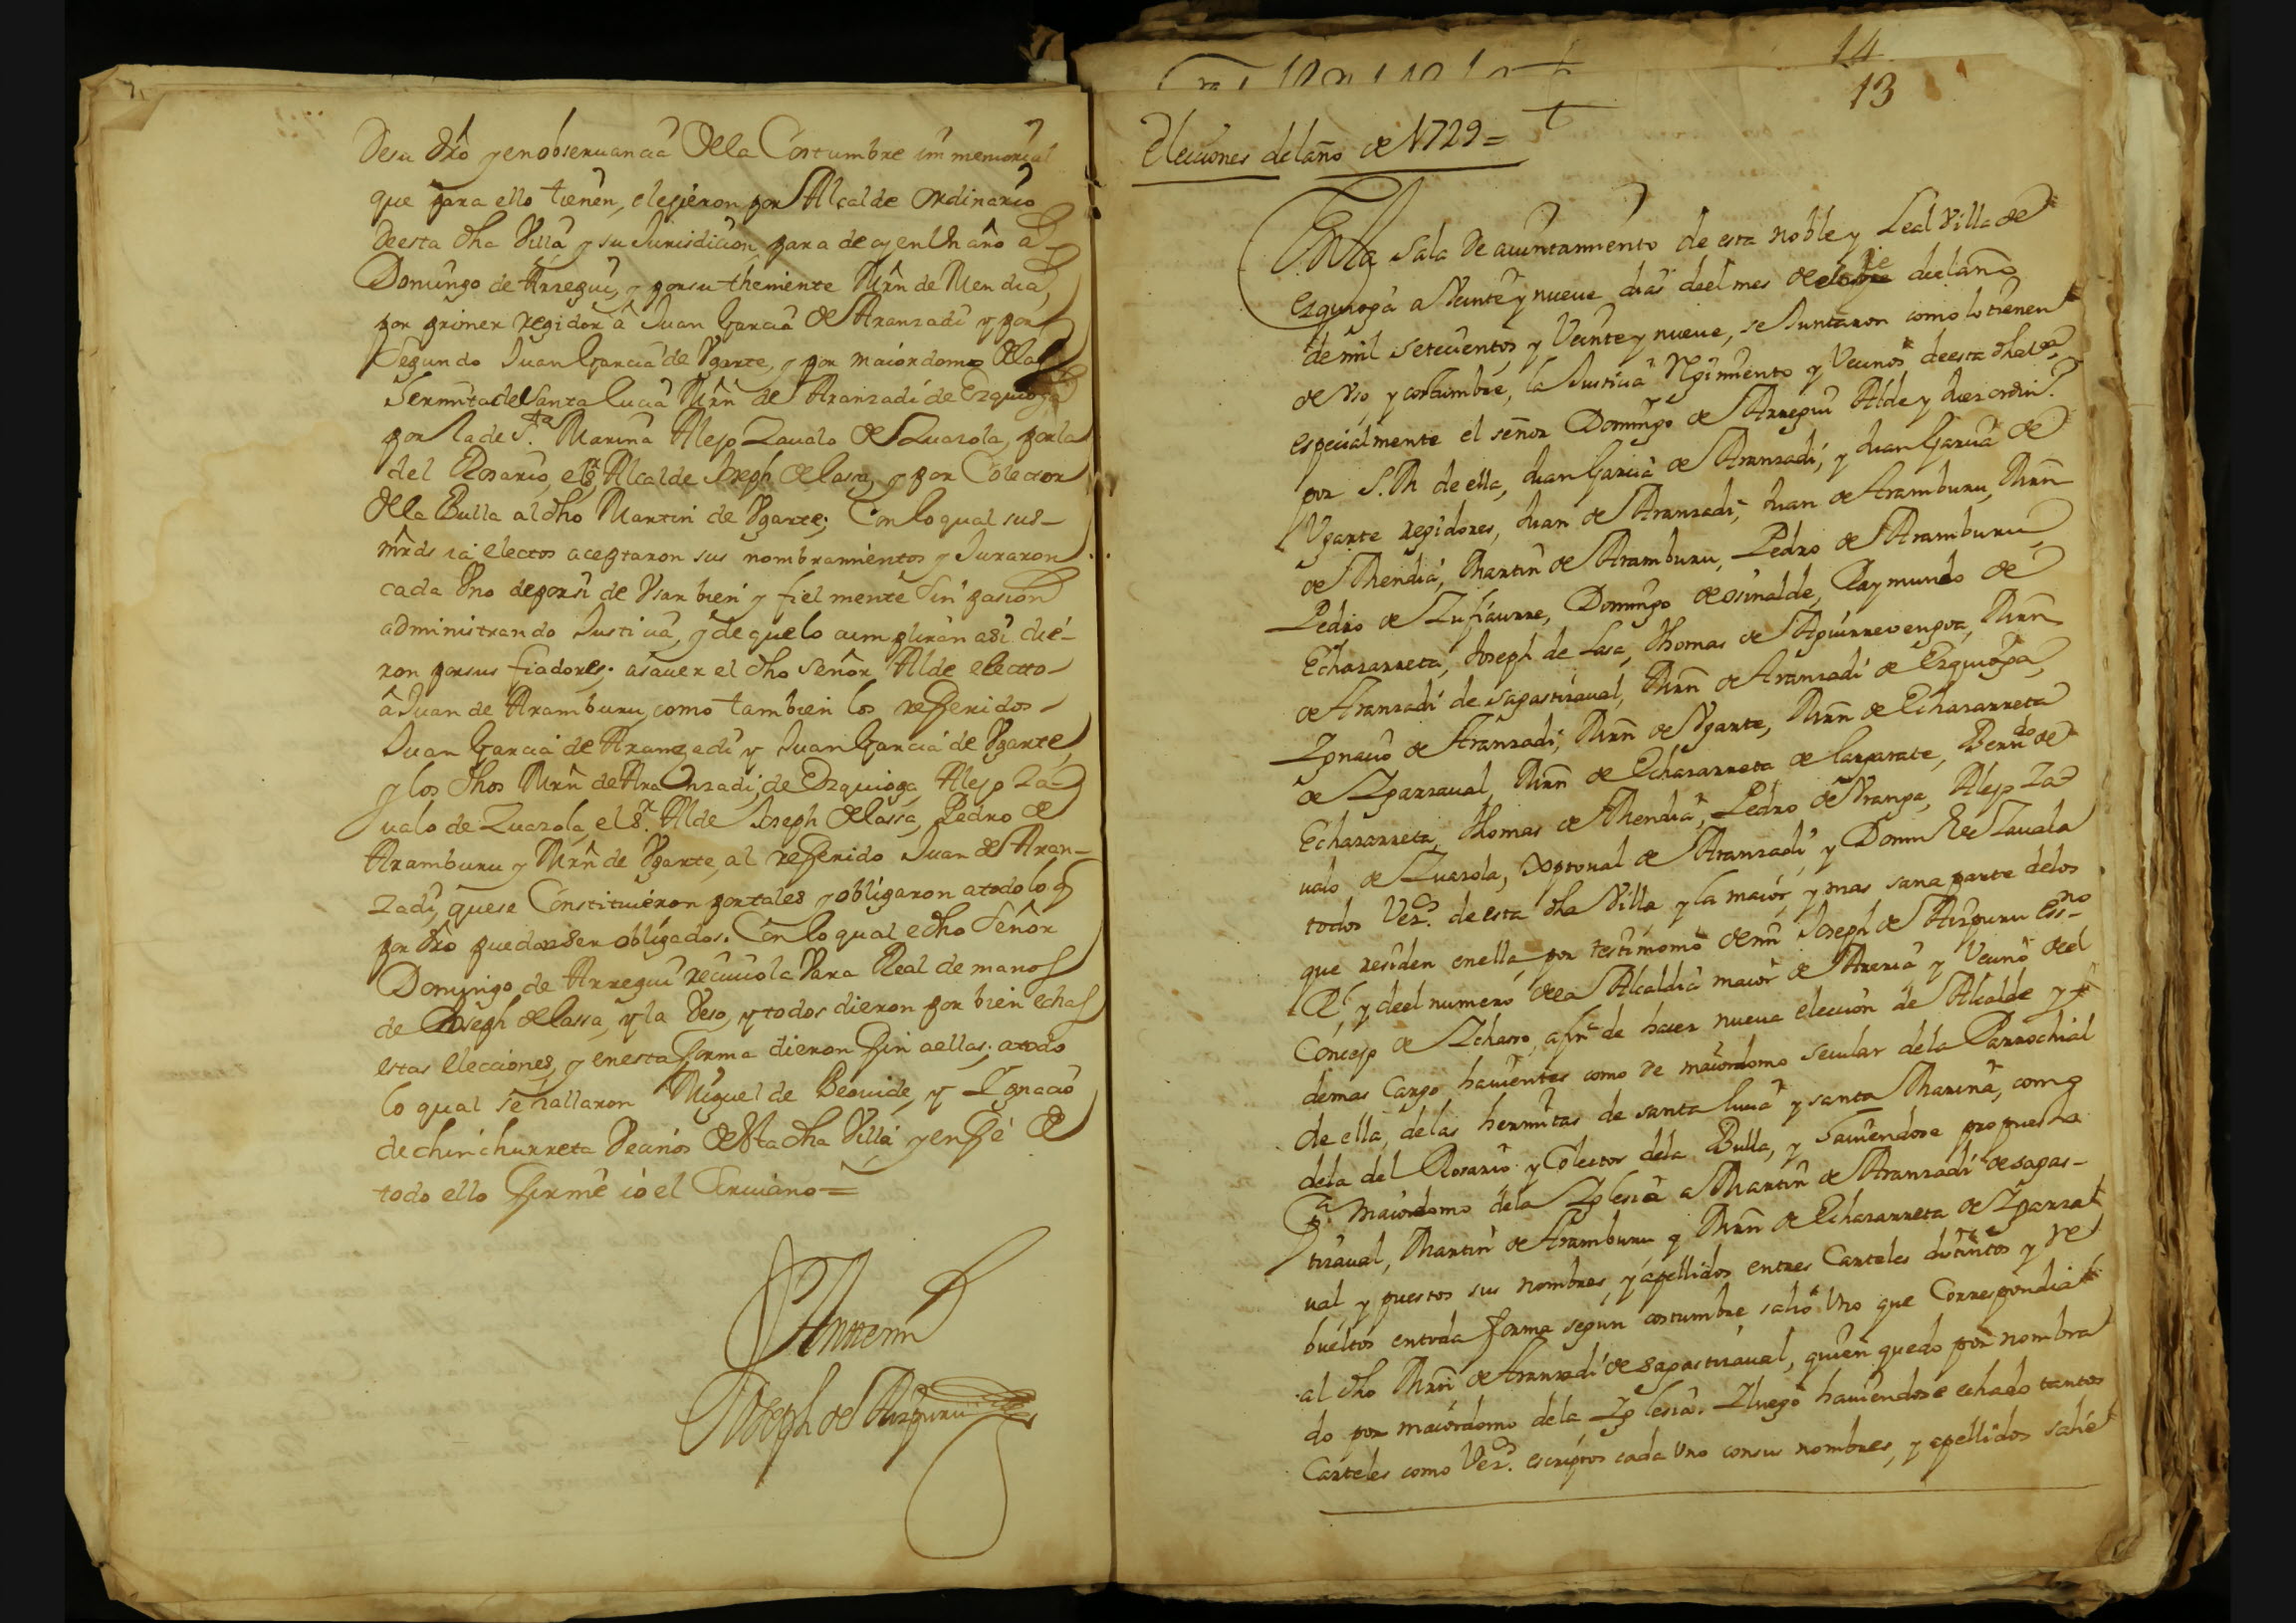 Desu dro y en observancia Dela Costumbre inmemorial
que para ello tienen, elegieron por Alcalde ordinario
de esta dha Villa y su Jurisdicion para de oy en Un año a
Domingo de Arregui, y por su theniente Mrn de Mendia,
por primer regidor â Juan Garcia de Aranzadi y por
Segundo Juan Garcia de Vgarte, y por maiordomo dela
Sermita de Santa lucia Mrn de Aranzadi de Ezquioga
por la de S.ta Marina Alejo Zavalo de Zuazola, por la
del Rosario, el s.r Alcalde Joseph de lassa, y por Colector
Dela Bulla al dho Martin de Vgarte; Con lo qual sus
mrds ia electos aceptaron sus nombramientos y Juraron
cada Uno de por si de Usar bien y fielmente sin pasion
administrando Justicia, y de que lo cumpliran asi die-
ron por sus fiadores. asauer el dho Señor Alde electo
â Juan de Aramburu, como tambien los referidos
Juan Garcia de Aranzadi y Juan Garcia de Vgarte,
y los dhos Mrn de Aranzadi, de Ezquioga, Alejo Za-
ualo de Zuazola, el s.r Alde Joseph de lassa, Pedro de
Aramburu y Mrn de Vgarte, al referido Juan de Aran-
zadi, que se Constituieron por tales y obligaron a todo lo q
por dro puedan ser obligados. Con lo qual el dho Señor
Domingo de Arregui reciuio la Vara Real de manos
de Joseph de lassa, y la Veso, y todos dieron por bien echas
estas elecciones, y en esta forma dieron fin a ellas; a todo
lo qual se hallaron Miguel de Beovide, y Ignacio
de chinchurreta Vecinos de esta dha Villa, y en fé de
todo ello firmé io el Escriuano=
Ante mi
Joseph de Aizpuru
14
13
Elecciones del año de 1729=
En la Sala de aiuntamiento de esta noble y Leal Villa de
Ezquioga a Veinte y nueue dias del mes de del año
de mil setecientos y Veinte y nueue, se Juntaron como lo tienen
de Vso y costumbre, la Justicia Rgimiento y Vecinos de esta dha Va,
especialmente el señor Domingo de Arregui Alde y Juez ordin.o
por S. M. de ella, Juan Garcia de Aranzadi, y Juan Garcia de
Vgarte regidores, Juan de Aranzadi, Juan de Aramburu, Mrn
de Mendia, Martin de Aramburu, Pedro de Aramburu,
Pedro de Zufiaurre, Domingo de osinalde, Raymundo de
Echazarreta, Joseph de Lasa, Thomas de Aguirrevengoa, Mrn
de Aranzadi de sagastizaual, Mrn de Aranzadi de Ezquioga,
Ignacio de Aranzadi, Mrn de Vgarte, Mrn de Echazarreta
de Igarzaual, Mrn de Echazarreta de , Berndo de
Echazarreta, Thomas de Mendia, Pedro de Vranga, Alejo Za
ualo de Zuazola, Xptoual de Aranzadi y Domin de Zauala
todos Vez.s de esta dha Villa y la maior y mas sana parte delos
que residen en ella, por testimonio de mi Joseph de Aizpuru Essno
Rl y del numero dela Alcaldia maior de Areria y Vecino del
Concejo de Ichasso, a fin de hacer nueua eleccion de Alcalde y
demas Cargo hauientes como de maiordomo secular dela Parrochial
de ella, delas hermitas de santa lucia y santa Marina, como
dela del Rosario y Colector dela Bulla, y hauiendose propuesto
p.a Maiordomo dela Iglesia a Martin de Aranzadi de sagas-
tizaual, Martin de Aramburu y Mrn de Echazarreta de Igarza
ual, y puestos sus nombres, y apellidos en tres Carteles distintos y re
bueltos en toda forma segun costumbre, salió Uno que Correspondia
al dho Mrn de Aranzadi de sagastizaual, quien quedo por nombra
do por maiordomo dela Iglesia. Y luego hauiendose echado tantos
Carteles como Vez.s escriptos cada Uno con sus nombres, y apellidos salie